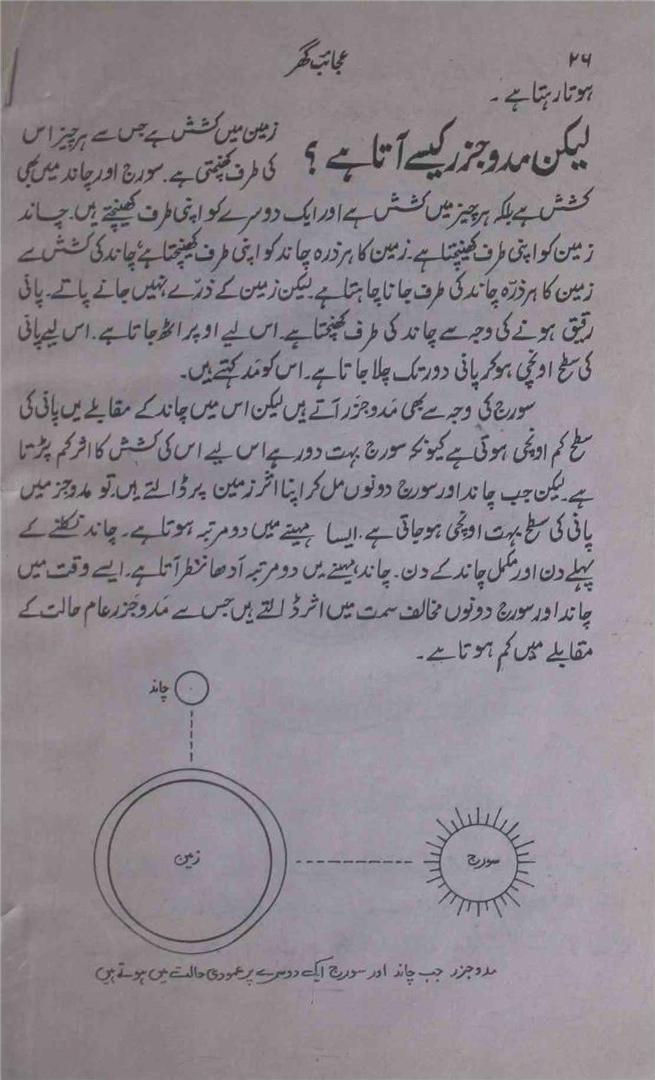 ۲۶
عجائب گھر
ہوتا رہتا ہے ۔
لیکن مدوجزر کیسے آتا ہے ؟
زمین میں کشش ہے جس سے ہر چیز اس
کی طرف کھنچتی ہے۔ سورج اور چاند میں بھی
کشش ہے بلکہ ہر چیز میں کشش ہے اور ایک دوسرے کو اپنی طرف کھینچتے ہیں۔ چاند
زمین کو اپنی طرف کھینچتا ہے۔ زمین کا ہر ذرہ چاند کو اپنی طرف کھینچتا ہے، چاند کی کشش سے
زمین کا ہر ذرّہ چاند کی طرف جانا چاہتا ہے۔ لیکن زمین کے ذرّے نہیں جانے پاتے۔ پانی
رقیق ہونے کی وجہ سے چاند کی طرف کھنچتا ہے۔ اس لیے اوپر اٹھ جاتا ہے۔ اس لیے پانی
کی سطح اونچی ہو کر پانی دور تک چلا جاتا ہے۔ اس کو مَد کہتے ہیں۔
سورج کی وجہ سے بھی مَدوجَزر آتے ہیں لیکن اس میں چاند کے مقابلے میں پانی کی
سطح کم اونچی ہوتی ہے کیونکہ سورج بہت دور ہے اس لیے اس کی کشش کا اثر کم پڑتا
ہے۔ لیکن جب چاند اور سورج دونوں مل کر اپنا اثر زمین پر ڈالتے ہیں، تو مدوجزر میں
پانی کی سطح بہت اونچی ہو جاتی ہے۔ ایسا مہینے میں دو مرتبہ ہوتا ہے۔ چاند نکلنے کے
پہلے دن اور مکمل چاند کے دن۔ چاند مہینے میں دو مرتبہ آدھا نظر آتا ہے۔ ایسے وقت میں
چاند اور سورج دونوں مخالف سمت میں اثر ڈالتے ہیں جس سے مَدوجَزر عام حالت کے
مقابلے میں کم ہوتا ہے۔
چاند
زمین
سورج
مدوجزر جب چاند اور سورج ایک دوسرے پر عمودی حالت میں ہوتے ہیں